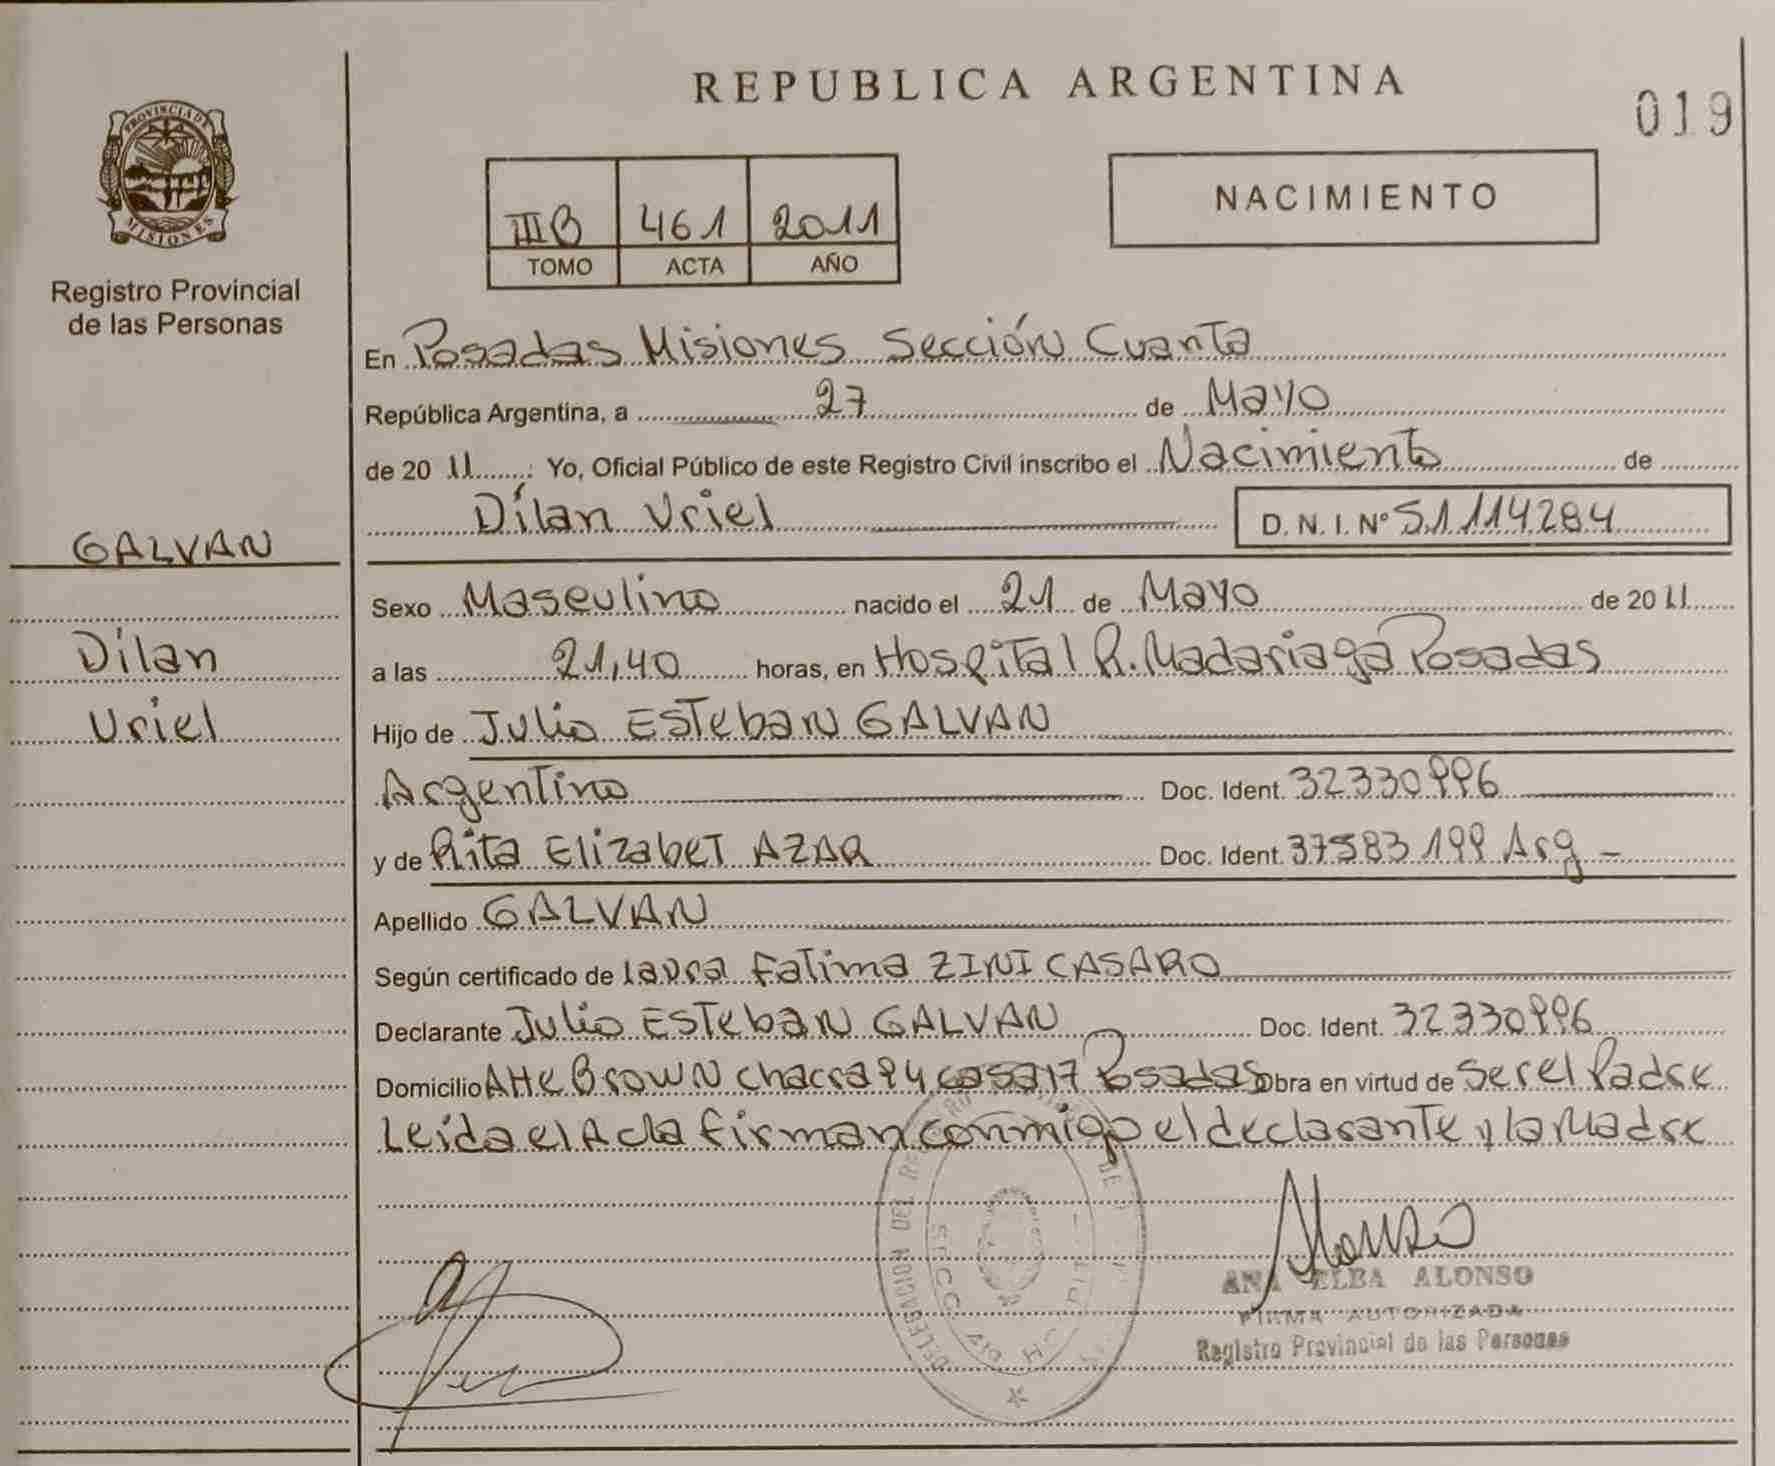 REPUBLICA ARGENTINA
019
PROVINCIA DE
MISIONES
Registro Provincial
de las Personas
III B 461 2011
TOMO ACTA AÑO
NACIMIENTO
En Posadas Misiones Sección Cuarta
República Argentina, a 27 de Mayo
de 20 11 : Yo, Oficial Público de este Registro Civil inscribo el Nacimiento de
Dílan Uriel D. N. I. Nº 51114284
GALVAN
Dílan
Uriel
Sexo Masculino nacido el 21 de Mayo de 20 11
a las 21,40 horas, en Hospital R. Madariaga Posadas
Hijo de Julio Esteban GALVAN
Argentino Doc. Ident. 32330996
y de Rita Elizabet AZAR Doc. Ident. 37583199 Arg -
Apellido GALVAN
Según certificado de Laura Fatima ZINI CASARO
Declarante Julio Esteban GALVAN Doc. Ident. 32330996
Domicilio Alte Brown chacra 94 casa 17 Posadas Obra en virtud de Ser el Padre
Leída el Acta firman conmigo el declarante y la Madre
DELEGACION DEL
ANA ELBA ALONSO
FIRMA AUTORIZADA
Registro Provincial de las Personas